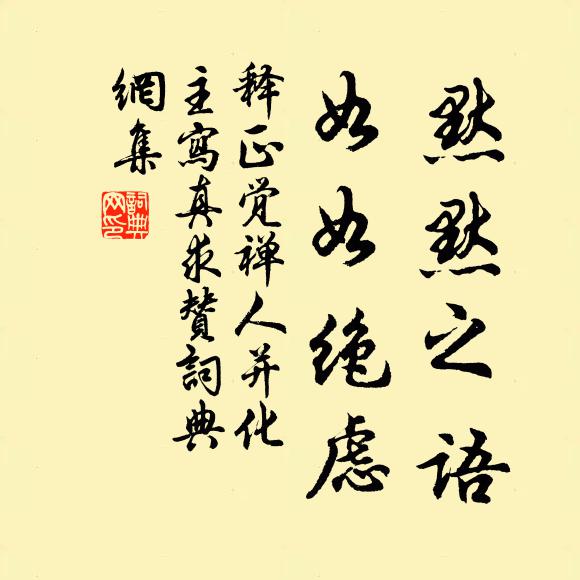 默默之语
如如绝虑
释正觉禅人并化
主寫真求赞詞典
網集
詞典
网印